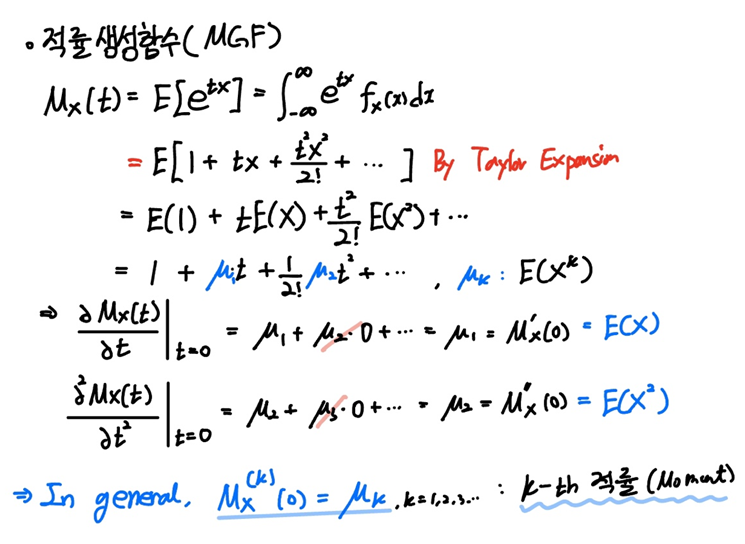 • 적률생성함수(MGF)
M_X(t) = E[e^{tx}] = ∫_{-∞}^{∞} e^{tx} f_X(x)dx
= E[1 + tx + \frac{t^2x^2}{2!} + ⋯] By Taylor Expansion
= E(1) + tE(X) + \frac{t^2}{2!} E(X^2) + ⋯
= 1 + μ_1t + \frac{1}{2!} μ_2t^2 + ⋯ , μ_k : E(X^k)
⇒ \frac{∂M_X(t)}{∂t}|_{t=0} = μ_1 + μ_2·0 + ⋯ = μ_1 = M'_X(0) = E(X)
\frac{∂^2M_X(t)}{∂t^2}|_{t=0} = μ_2 + μ_3·0 + ⋯ = μ_2 = M''_X(0) = E(X^2)
⇒ In general, M_X^{(k)}(0) = μ_k , k=1,2,3⋯ : k-th 적률(Moment)